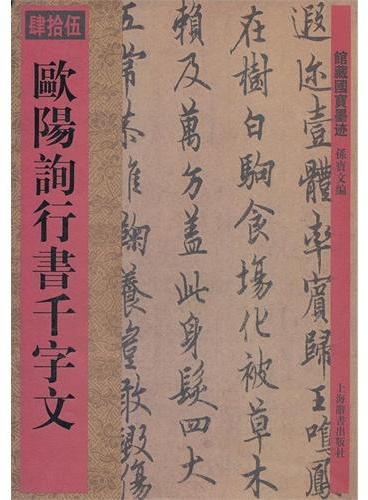 館藏國寶墨迹
孫寶文編
上海辭書出版社
遐迩壹體率賓歸王鳴鳳
在樹白駒食場化被草木
賴及萬方蓋此身髮四大
五常恭惟鞠養豈敢毀傷
肆拾伍
歐陽詢行書千字文